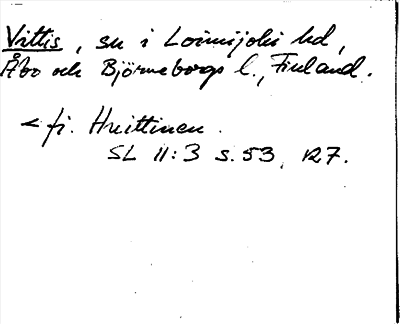 Vittis, sn i Loimijoki hd,
Åbo och Björneborgs l., Finland.
< fi. Huittinen.
SL 11:3 s. 53, 127.